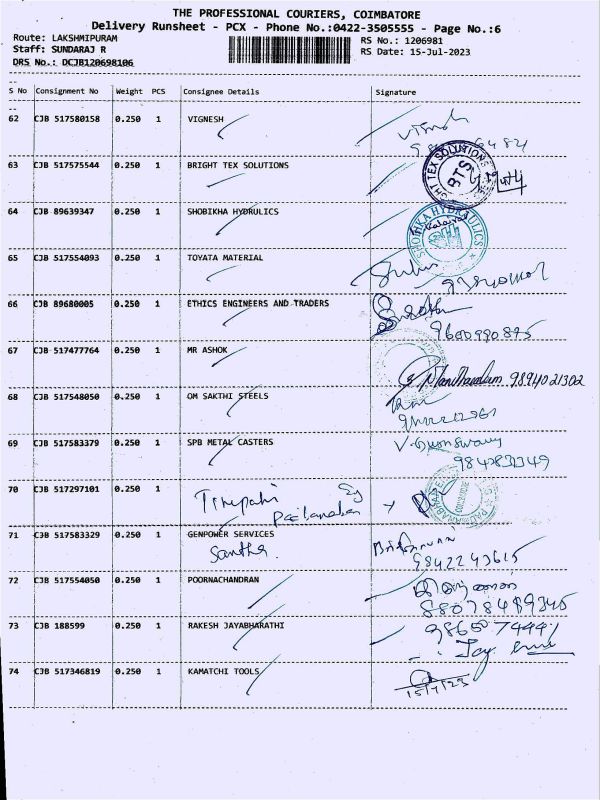 THE PROFESSIONAL COURIERS, COIMBATORE
Delivery Runsheet - PCX - Phone No.:0422-3505555 - Page No.:6
Route: LAKSHMIPURAM
RS No.: 1206981
Staff: SUNDARAJ R
RS Date: 15-Jul-2023
DRS No.: DCJB120698106
S No Consignment No Weight PCS Consignee Details Signature
62 CJB 517580158 0.250 1 VIGNESH
63 CJB 517575544 0.250 1 BRIGHT TEX SOLUTIONS
BTS
64 CJB 89639347 0.250 1 SHOBIKHA HYDRULICS
65 CJB 517554093 0.250 1 TOYATA MATERIAL
66 CJB 89680005 0.250 1 ETHICS ENGINEERS AND TRADERS
9600990875
67 CJB 517477764 0.250 1 MR ASHOK
9894021302
68 CJB 517548050 0.250 1 OM SAKTHI STEELS
69 CJB 517583379 0.250 1 SPB METAL CASTERS
70 CJB 517297101 0.250 1 Tirupathi
71 CJB 517583329 0.250 1 GENPOWER SERVICES
Santha
9842243615
72 CJB 517554050 0.250 1 POORNACHANDRAN
73 CJB 188599 0.250 1 RAKESH JAYABHARATHI
74 CJB 517346819 0.250 1 KAMATCHI TOOLS
15/7/23